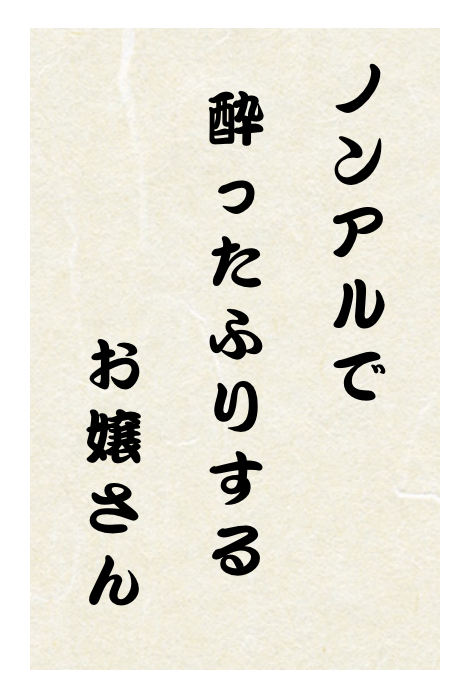 ノンアルで
酔ったふりする
お嬢さん